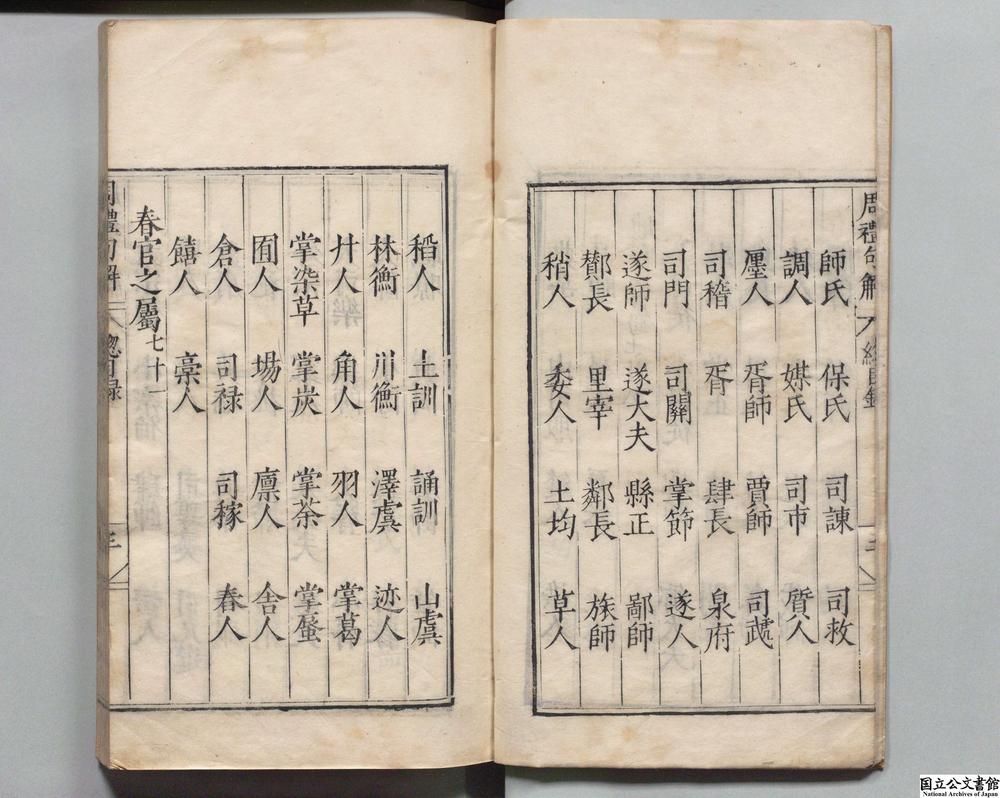 周禮句解 總目錄
師氏 保氏 司諫 司救
調人 媒氏 司市 質人
廛人 胥師 賈師 司虣
司稽 胥 肆長 泉府
司門 司關 掌節 遂人
遂師 遂大夫 縣正 鄙師
鄼長 里宰 鄰長 族師
稍人 委人 土均 草人
稻人 土訓 誦訓 山虞
林衡 川衡 澤虞 迹人
廾人 角人 羽人 掌葛
掌染草 掌炭 掌荼 掌蜃
囿人 場人 廩人 舍人
倉人 司禄 司稼 春人
饎人 稾人
春官之屬七十一
周禮句解 總目録 三
国立公文書館
National Archives of Japan